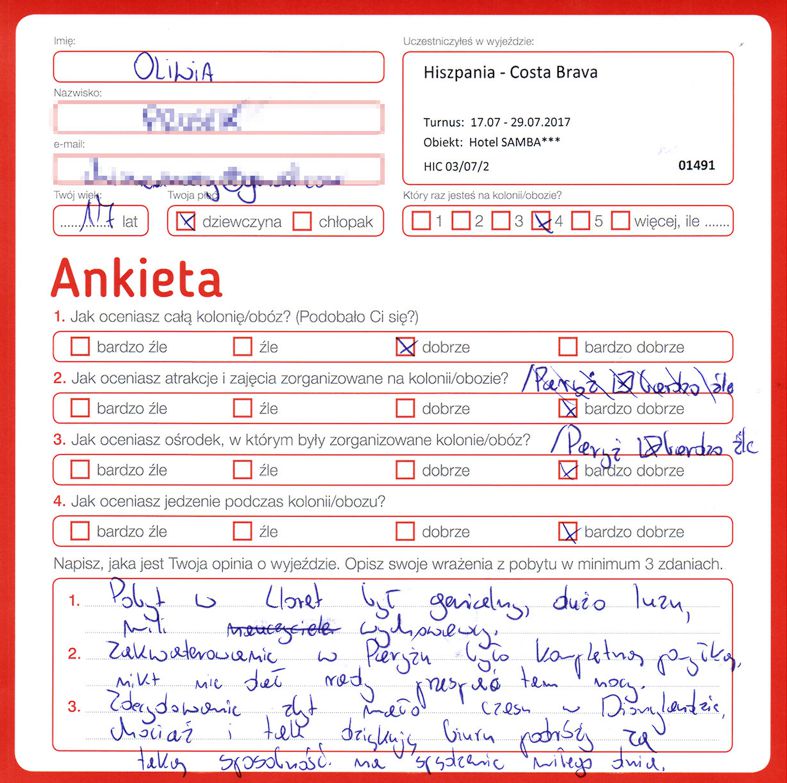 Imię:
OLIWIA
Uczestniczyłeś w wyjeździe:
Hiszpania - Costa Brava
Turnus: 17.07 - 29.07.2017
Obiekt: Hotel SAMBA***
HIC 03/07/2
01491
Nazwisko:
e-mail:
Twój wiek:
17 lat
Twoja płeć
dziewczyna
chłopak
Który raz jesteś na kolonii/obozie?
1 2 3 4 5 więcej, ile .......
Ankieta
1. Jak oceniasz całą kolonię/obóz? (Podobało Ci się?)
bardzo źle źle dobrze bardzo dobrze
2. Jak oceniasz atrakcje i zajęcia zorganizowane na kolonii/obozie? /Paryż bardzo źle
bardzo źle źle dobrze bardzo dobrze
3. Jak oceniasz ośrodek, w którym były zorganizowane kolonie/obóz? /Paryż bardzo źle
bardzo źle źle dobrze bardzo dobrze
4. Jak oceniasz jedzenie podczas kolonii/obozu?
bardzo źle źle dobrze bardzo dobrze
Napisz, jaka jest Twoja opinia o wyjeździe. Opisz swoje wrażenia z pobytu w minimum 3 zdaniach.
1. Pobyt w Lloret był genialny, dużo luzu,
mili wychowawcy.
2. Zakwaterowanie w Paryżu było kompletną pomyłką,
nikt nie dał rady przespać tam nocy.
3. Zdecydowanie zbyt mało czasu w Disneylandzie,
chociaż i tak dziękuję biuru podróży za
taką sposobność na spędzenie miłego dnia.